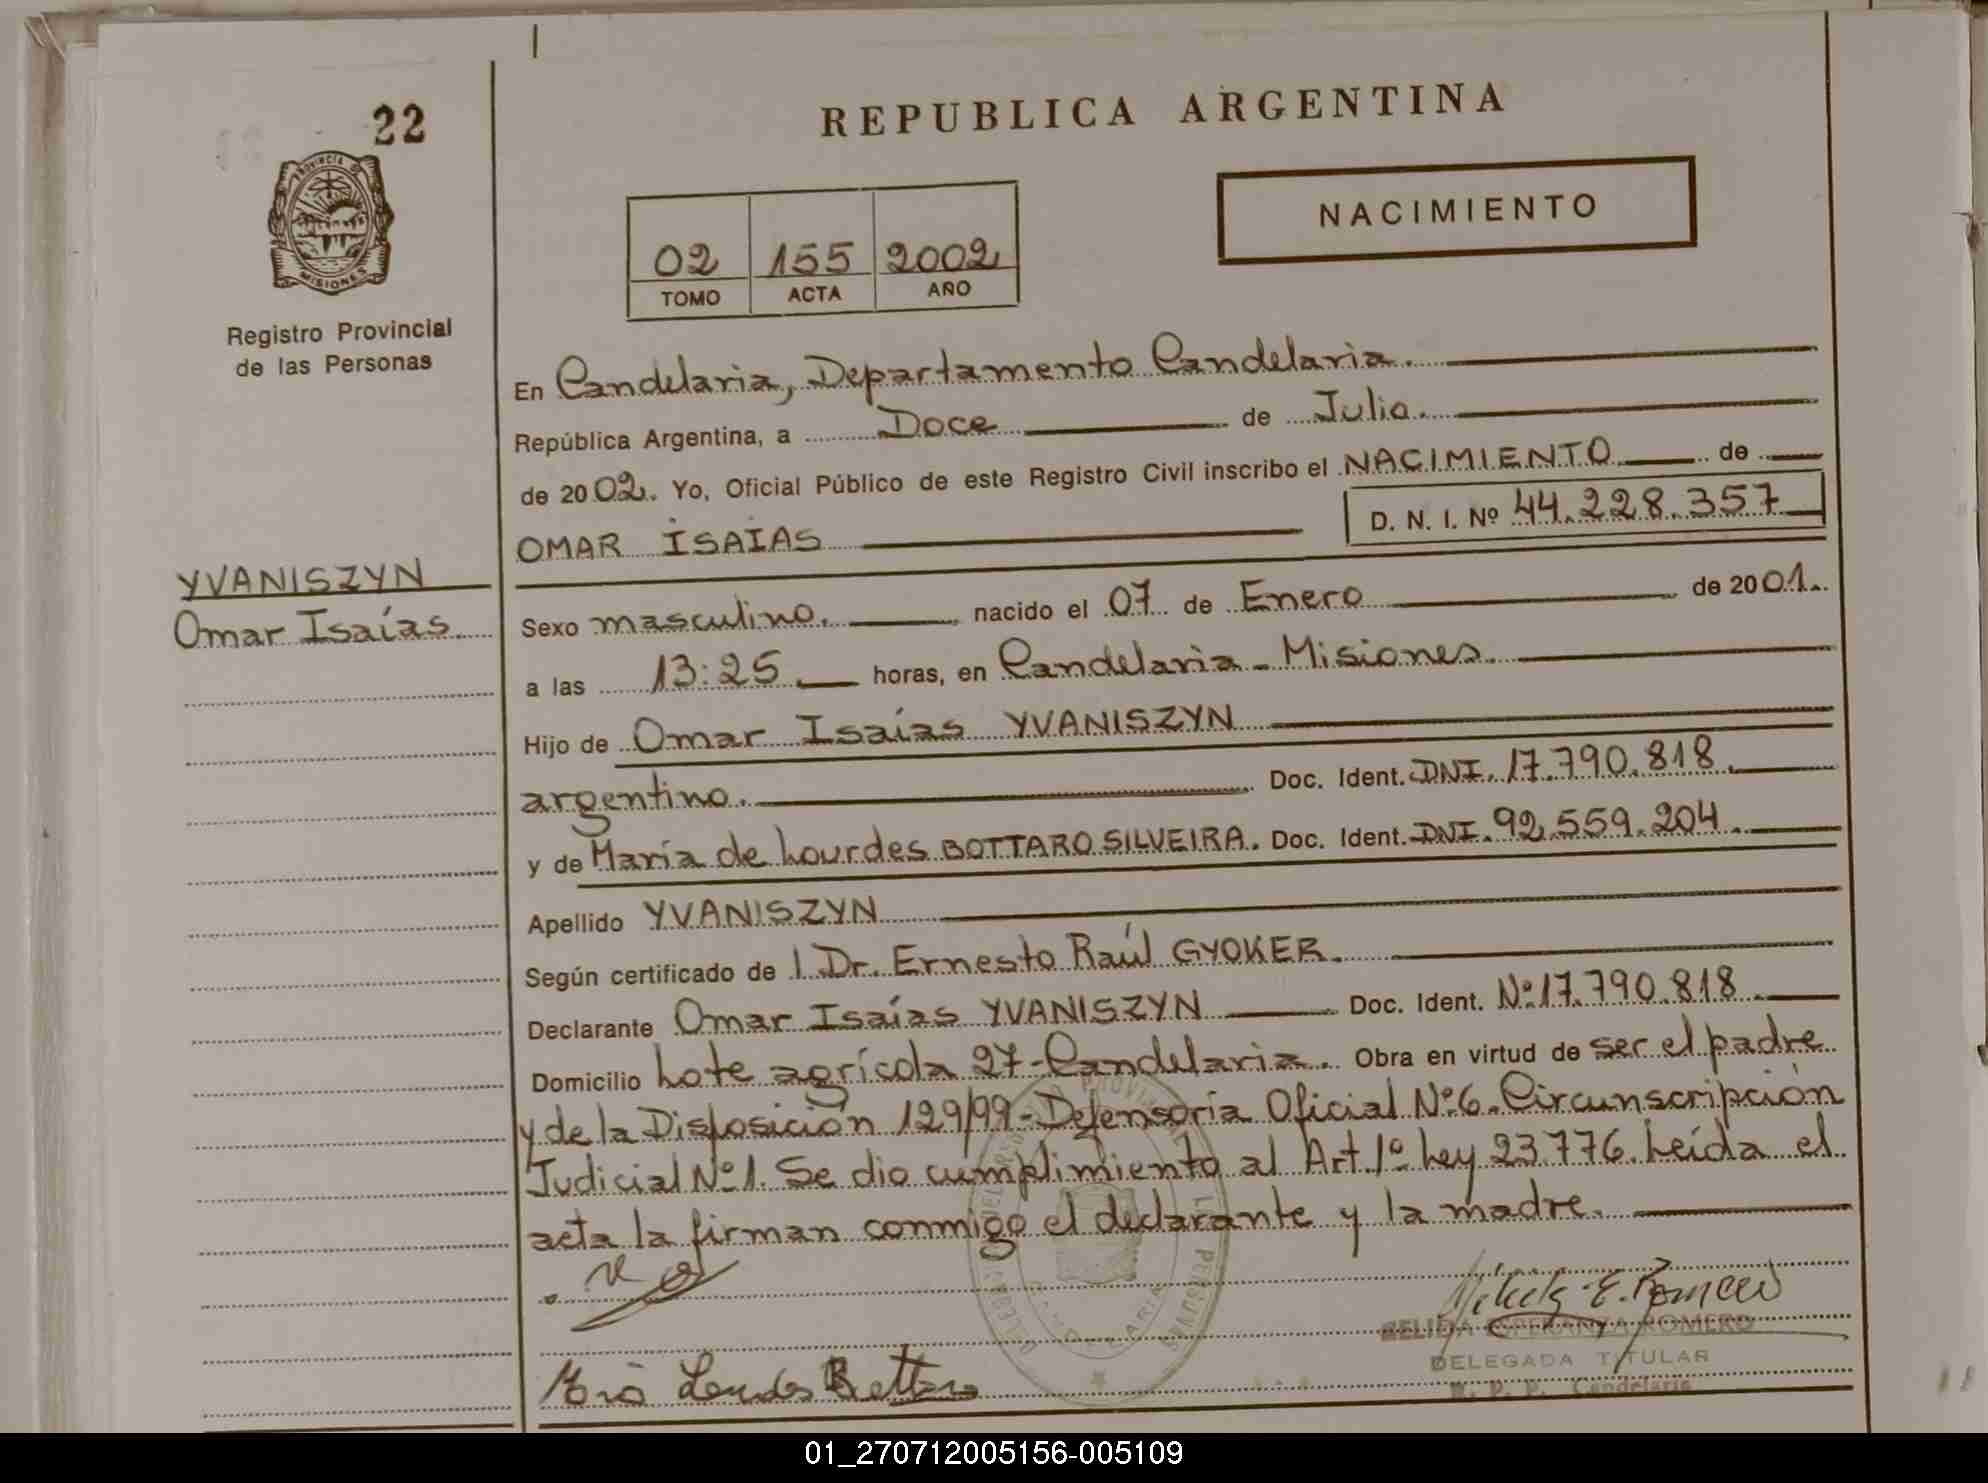 22
REPUBLICA ARGENTINA
PROVINCIA DE
MISIONES
NACIMIENTO
02 155 2002
TOMO ACTA AÑO
Registro Provincial
de las Personas
En Candelaria, Departamento Candelaria.
República Argentina, a Doce de Julio.
de 2002. Yo, Oficial Público de este Registro Civil inscribo el NACIMIENTO de
OMAR ISAIAS D. N. I. Nº 44.228.357
YVANISZYN
Omar Isaías
Sexo masculino. nacido el 07 de Enero de 2001.
a las 13:25 horas, en Candelaria - Misiones.
Hijo de Omar Isaías YVANISZYN
argentino. Doc. Ident. DNI. 17.790.818.
y de María de Lourdes BOTTARO SILVEIRA. Doc. Ident. DNI. 92.559.204.
Apellido YVANISZYN
Según certificado de l Dr. Ernesto Raúl GYOKER.
Declarante Omar Isaías YVANISZYN Doc. Ident. Nº 17.790.818.
Domicilio Lote agrícola 27-Candelaria. Obra en virtud de ser el padre
y de la Disposición 129/99-Defensoría Oficial Nº6. Circunscripción
Judicial Nº1. Se dio cumplimiento al Art. 1º Ley 23.776. Leída el
acta la firman conmigo el declarante y la madre.
E. Romero
ESPERANZA ROMERO
DELEGADA TITULAR
R. P. P. Candelaria
01_270712005156-005109